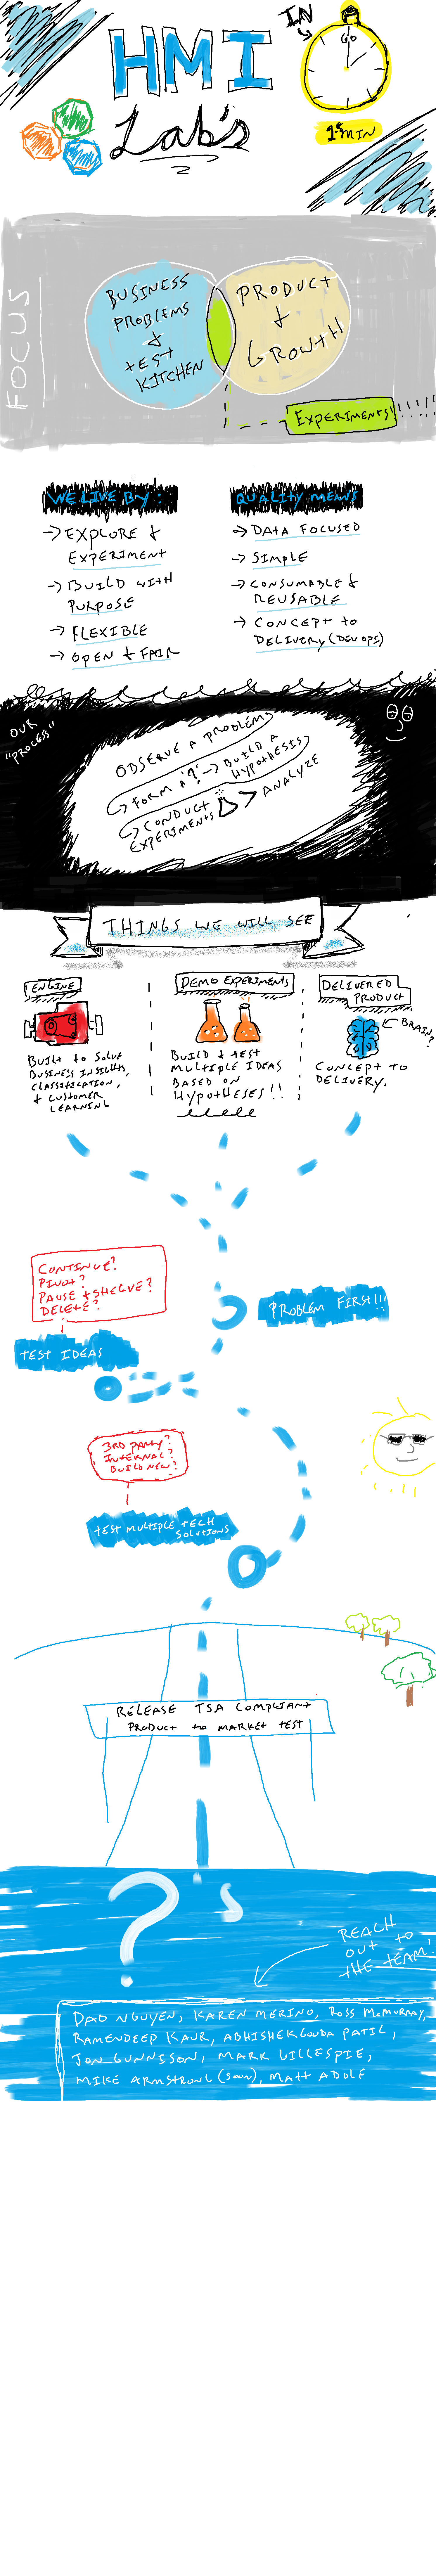 IN
GO
HMI
Lab's
1 MIN
FOCUS
BUSINESS
PROBLEMS
&
TEST
KITCHEN
PRODUCT
&
GROWTH
EXPERIMENTS!!!!!!
WE LIVE BY:
→ EXPLORE &
EXPERIMENT
→ BUILD WITH
PURPOSE
→ FLEXIBLE
→ OPEN & FAIR
QUALITY MEANS
→ DATA FOCUSED
→ SIMPLE
→ CONSUMABLE &
REUSABLE
→ CONCEPT TO
DELIVERY (DEVOPS)
OUR
"PROCESS"
OBSERVE A PROBLEM
FORM A '?' → BUILD A
HYPOTHESIS
CONDUCT
EXPERIMENTS
ANALYZE
THINGS WE WILL SEE
ENGINE
BUILT TO SOLVE
BUSINESS INSIGHTS,
CLASSIFICATION,
& CUSTOMER
LEARNING
DEMO EXPERIMENTS
BUILD & TEST
MULTIPLE IDEAS
BASED ON
HYPOTHESES!!
DELIVERED
PRODUCT
BRAIN?
CONCEPT TO
DELIVERY.
CONTINUE?
PIVOT?
PAUSE & SHELVE?
DELETE?
PROBLEM FIRST!!!
TEST IDEAS
3RD PARTY?
INTERNAL?
BUILD NEW?
TEST MULTIPLE TECH
SOLUTIONS
RELEASE TSA COMPLIANT
PRODUCT TO MARKET TEST
?'s
REACH
OUT TO
THE TEAM!
DAO NGUYEN, KAREN MERINO, ROSS MCMURRAY,
RAMENDEEP KAUR, ABHISHEKGOUDA PATIL,
JON GUNNISON, MARK GILLESPIE,
MIKE ARMSTRONG (SOON), MATT ADOLF